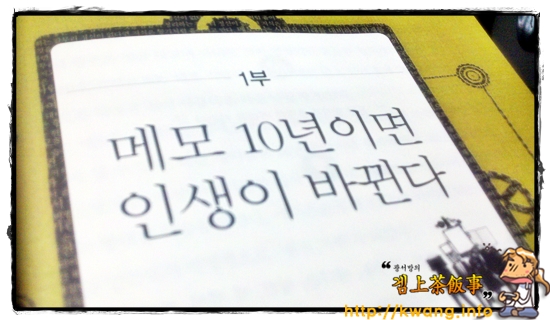 1부
메모 10년이면
인생이 바뀐다
“ 광서방의
컴上茶飯事 ”
http://kwang.info